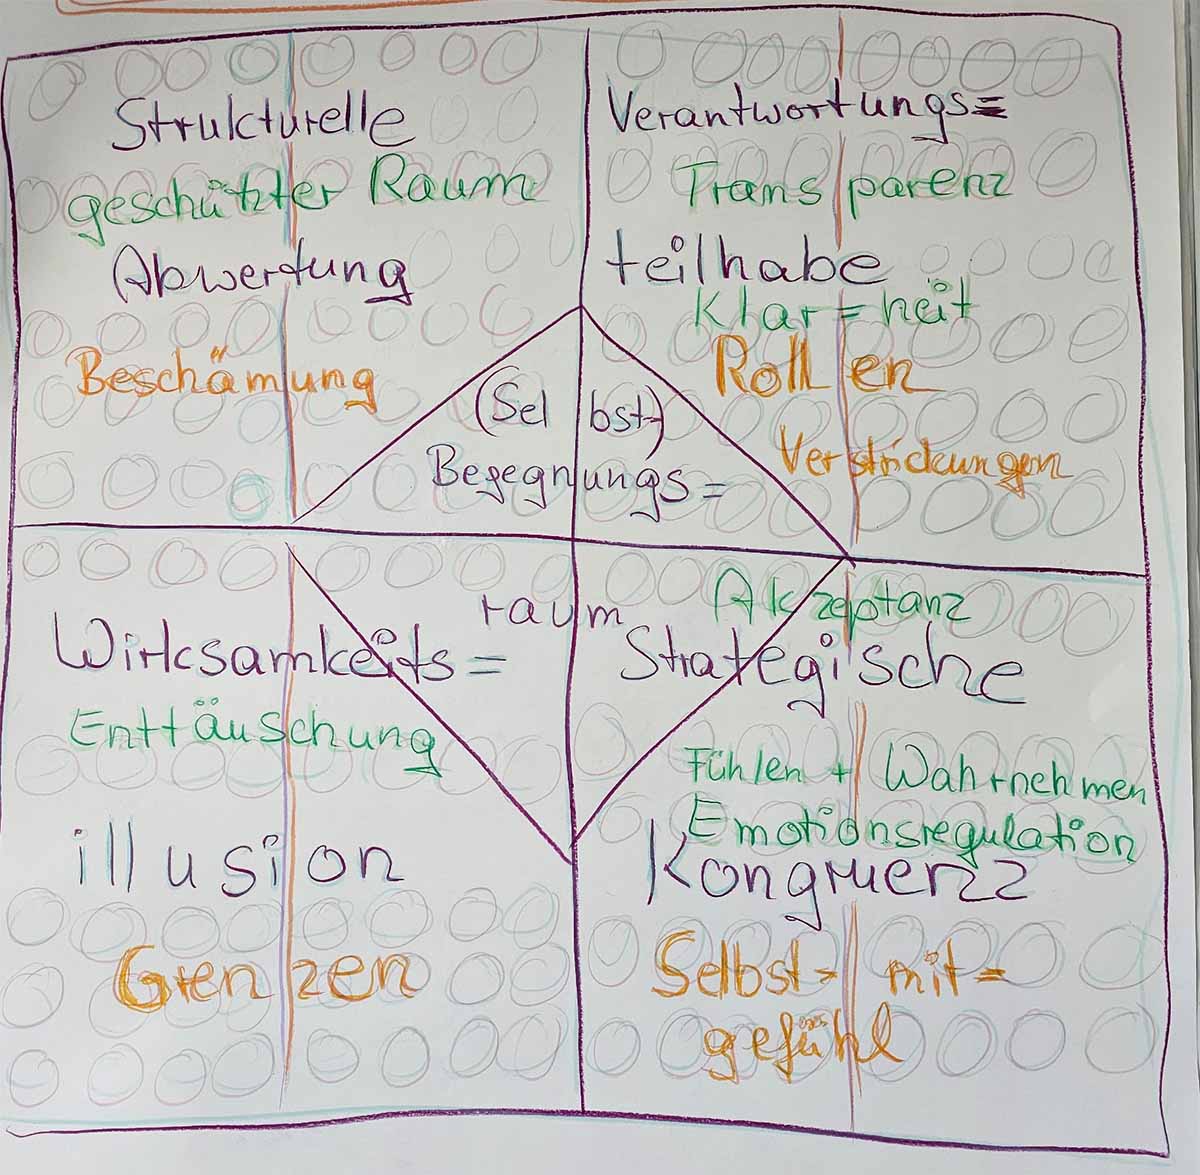 Strukturelle
geschützter Raum
Abwertung
Beschämung
Verantwortungs=
Transparenz
teilhabe
Klar=heit
Rollen
Verstrickungen
(Selbst)
Begegnungs=
raum
Wirksamkeits=
Enttäuschung
illusion
Grenzen
Akzeptanz
Strategische
Fühlen + Wahrnehmen
Emotionsregulation
Kongruenz
Selbst= mit=
gefühl